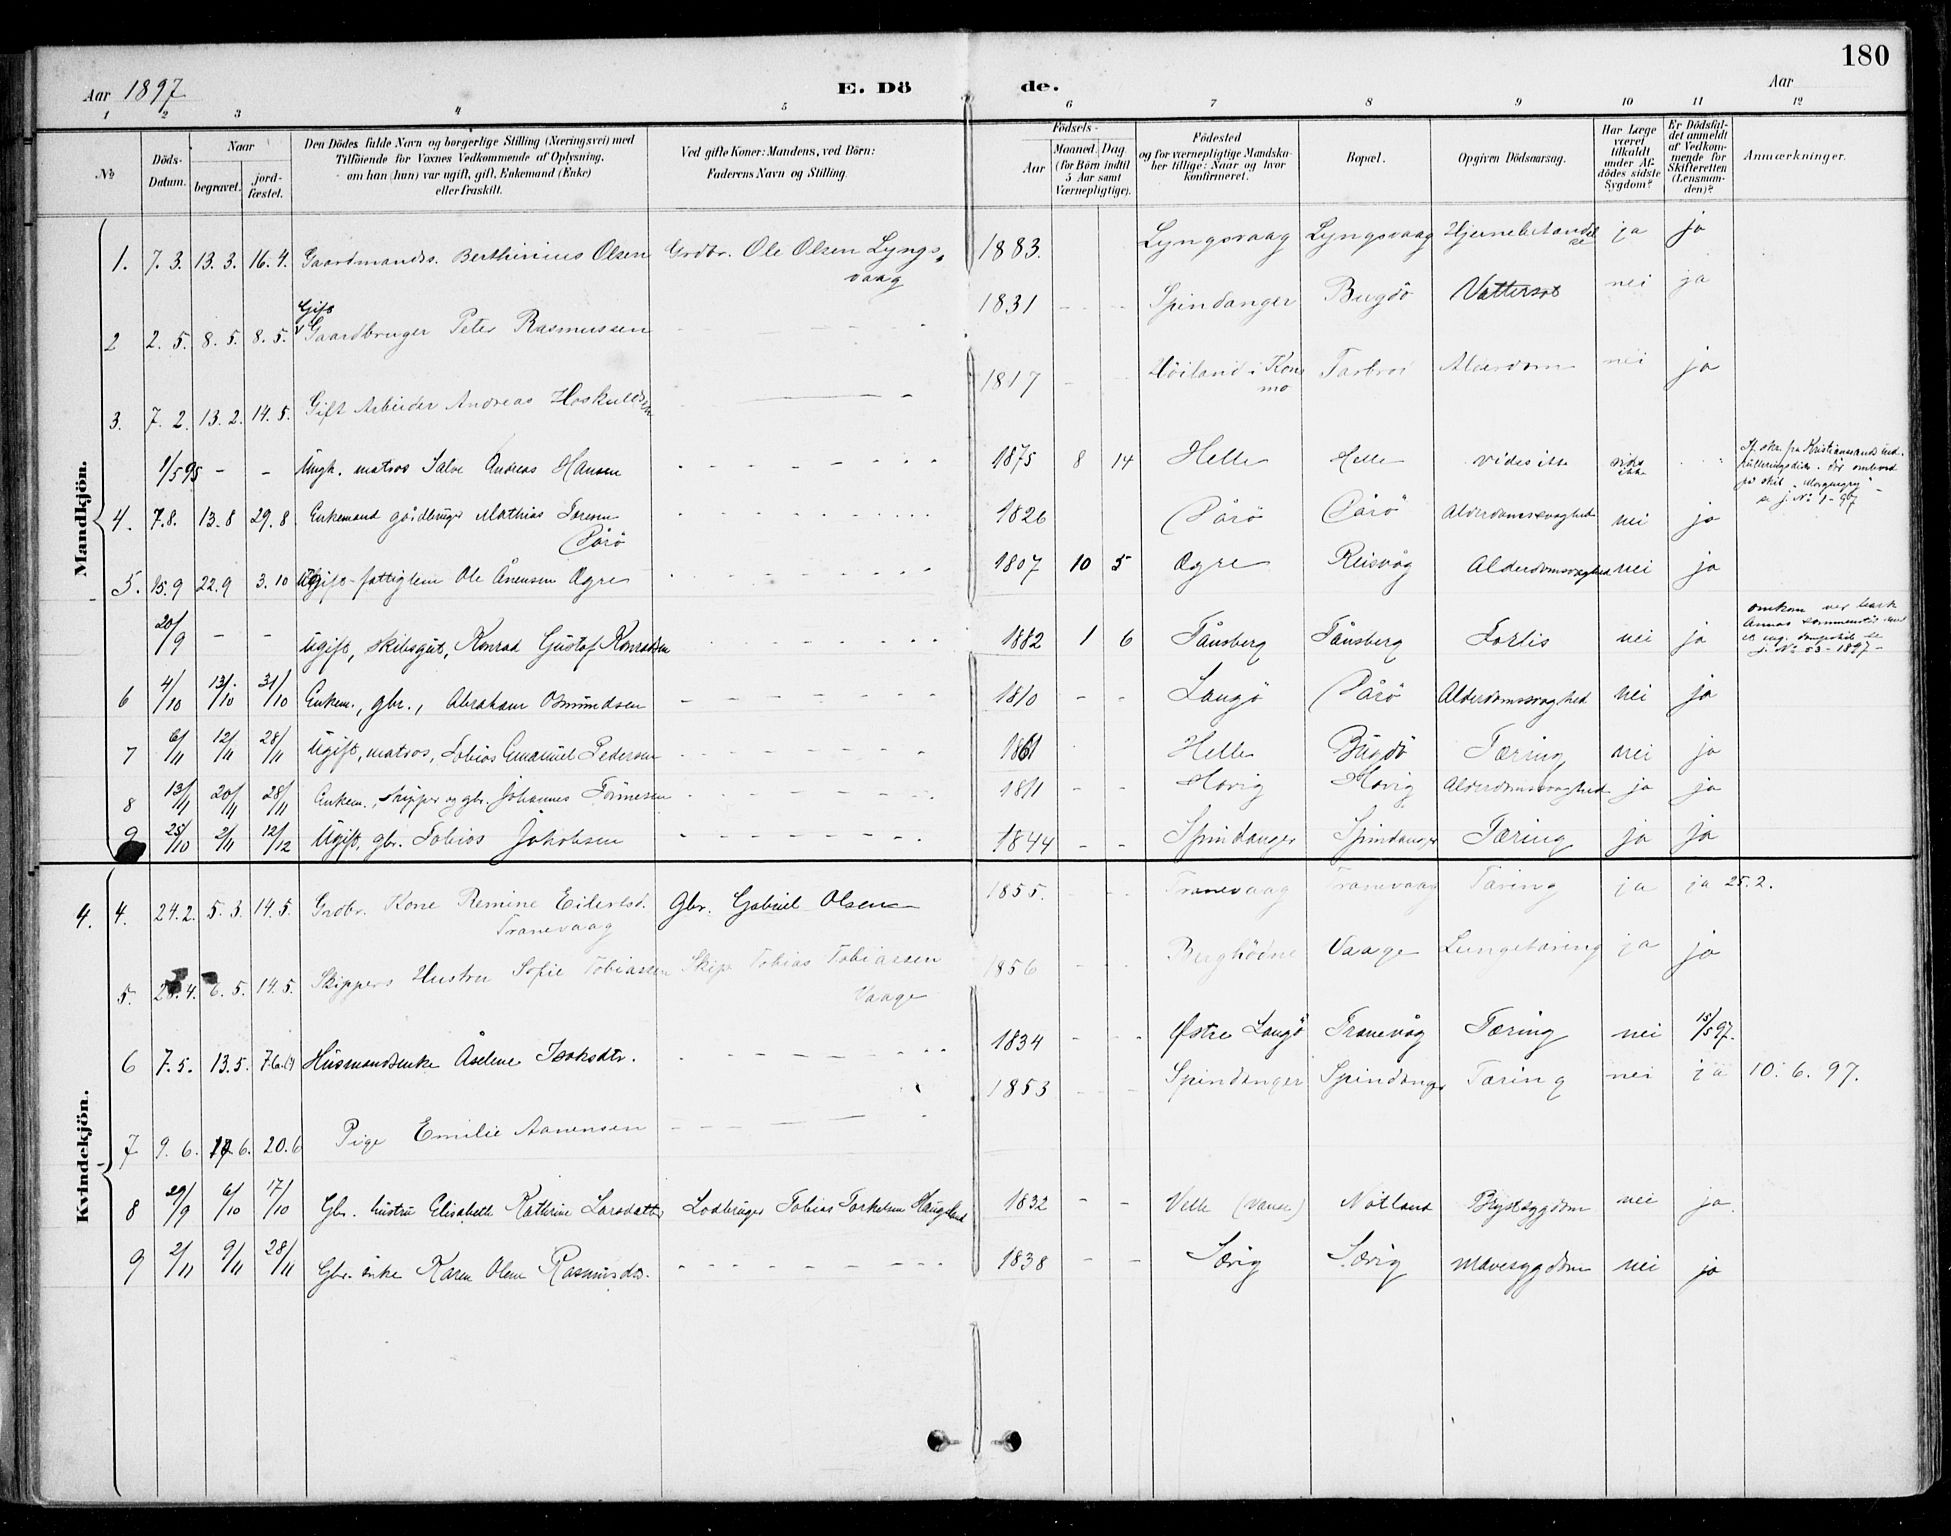 180
Aar 1897 E. Dö de. Aar
1 2 3 4 5 6 7 8 9 10 11 12
№ Döds-Datum. Naar begravet. jord-fæstet. Den Dödes fulde Navn og borgerlige Stilling (Næringsvei) med Tilföiende for Voxnes Vedkommende af Oplysning, om han (hun) var ugift, gift, Enkemand (Enke) eller fraskilt. Ved gifte Koner: Mandens, ved Börn: Faderens Navn og Stilling. Födsels- Aar Maaned. Dag (for Börn indtil 5 Aar samt Værnepligtige). Födested og for værnepligtige Mandska-ber tillige: Naar og hvor konfirmeret. Bopæl. Opgiven Dödsaarsag. Har Læge været tilkaldt under Af-dödes sidste Sygdom? Er Dödsfal-det anmeldt af Vedkom-mende for Skifteretten (Lensman-den)? Anmærkninger.
Mandkjön.
1. 7. 3. 13. 3. 16. 4. Gaardmands. Berthinius Olsen Grdbr. Ole Olsen Lyngs-vaag 1883. Lyngsvaag Lyngsvaag Hjernebetændelse ja ja
2 2. 5. 8. 5. 8. 5. Gift Gaardbruger Peter Rasmussen 1831 - - Spindanger Bugdö Vattersot nei ja
3. 7. 2. 13. 2. 14. 5. Gift Arbeider Andreas Hoskuldsen 1817 - - Höiland i Kons mo Alderdom nei ja
1/5 95 - - Ungk. matros Salve Andreas Hansen 1875 8 14 Helle Helle vides ikke vides ikke If. skr. fra Kristianssands ombord på skib "Morgengry" se j. № 1-97
4. 7. 8. 13. 8 29. 8 Enkemand gårdbruger Mathias Pårö 1826 Pårö Pårö Alderdomssvaghed nei ja
5. 15. 9 22. 9 3. 10 Ugift fattiglem Ole Ånensen Ogre 1807 10 5 Ogre Reisvåg Alderdomssvaghed nei ja
20/9 - - Ugift, skibsgut, Konrad Gustaf Konradsen 1882 1 6 Tånsberg Tånsberg Forlis nei ja omkom ved bark Annas sammenstöd med et eng. dampskib se j. № 53-1897-
6 4/10 13/10 31/10 Enkem., gbr., Abraham Osmundsen 1810 - - Langö Pårö Alderdomssvaghed nei ja
7 6/11 12/11 28/11 Ugift, matros, Tobias Emanuel Pedersen 1861 Helle Bugdö Tæring nei ja
8 13/11 20/11 28/11 Enkem., skipper og gbr. Johannes Tönnesen 1811 Hövig Hövig Alderdomssvaghed ja ja
9 25/10 2/11 12/12 Ugift, gbr. Tobias Jakobsen 1844 - - Spindanger Spindanger Tæring ja ja
Kvindekjön.
4. 4. 24. 2. 5. 3. 14. 5. Grdbr. Kone Remine Eilertsd. Tranevaag Gbr. Gabriel Olsen 1855. - - Tranevaag Tranevaag Tæring ja ja 25. 2.
5. 4. 5. 14. 5. Skippers Hustru Sofie Tobiassen Skip. Tobias Tobiassen Vaage 1856 - - Vaage Lungetæring ja ja
6 7. 5. 13. 5. Husmandsenke Åselene Isaksdtr. 1834 - - Østre Langö Tranevåg Tæring nei 15/5 97.
7 9. 6. 6. 20. 6 Pige Emilie Aanensen 1853 - - Spindanger Spindanger Tæring nei ja 10. 6. 97.
8 29/9 6/10 17/10 Gbr. hustru Elisabeth Kathrine Larsdatter Tobias Torkelsen Haugeland 1832 - - Velle (Vanse) Nötland Brystsygdom nei ja.
9 2/11 9/11 28/11 Gbr. enke Karen Olene Rasmusdtr. 1838 - - Særig Særig Mavesygdom nei ja